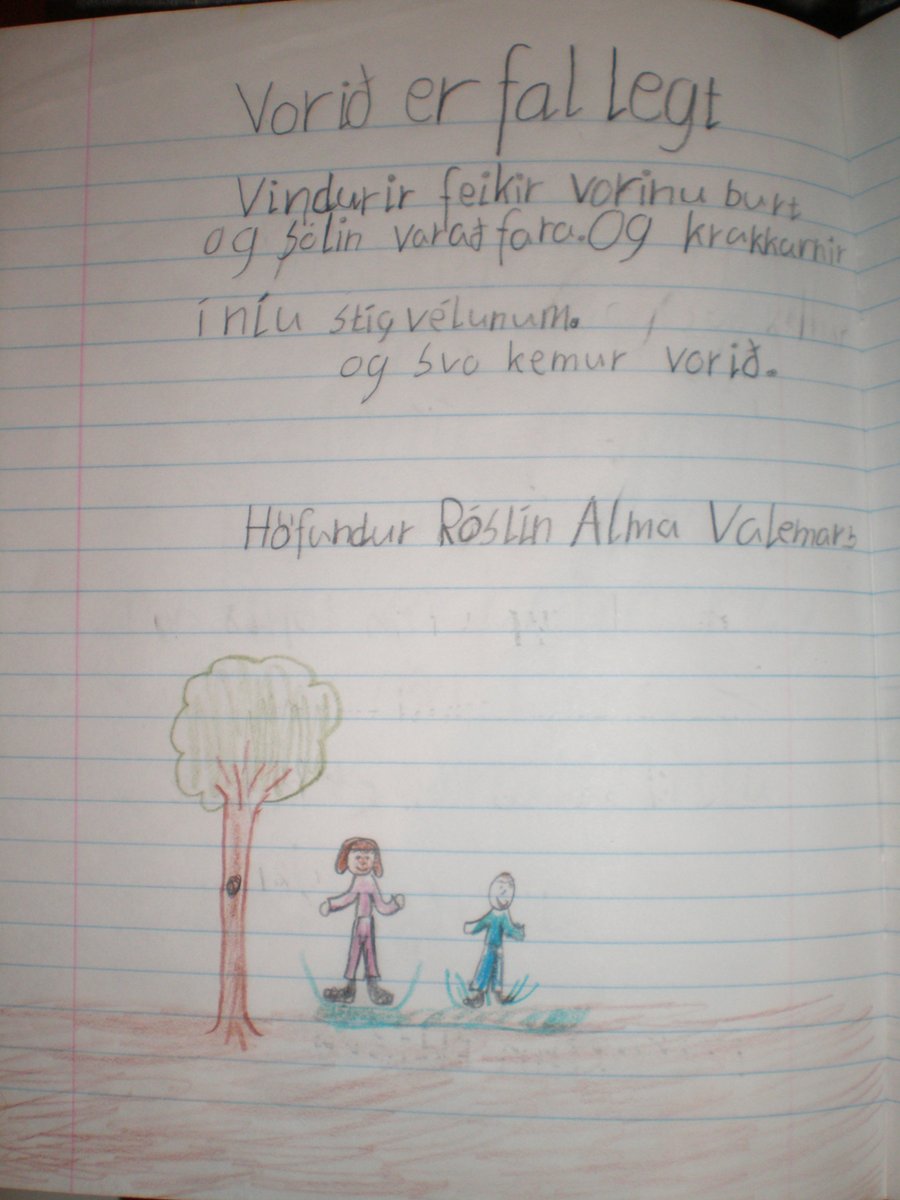 Vorið er fallegt
Vindurir feikir vorinu burt
og sólin varað fara. Og krakkarnir
í níu stígvélunum.
og svo kemur vorið.
Höfundur Róslín Alma Valemars